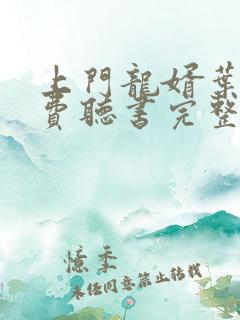 上門龍婿葉
費聽書完整
憶季
未任同意禁止转载